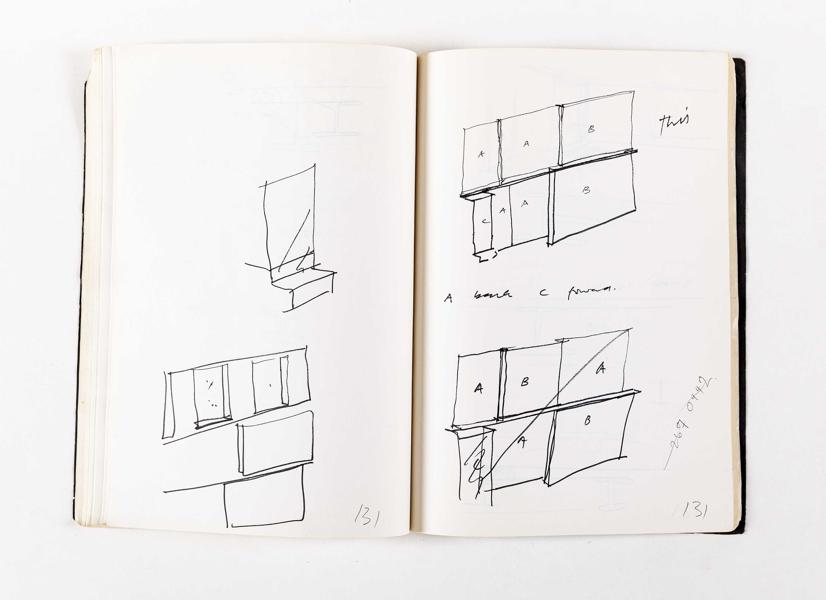 131
A A B
This
B
C A A
A back C forward.
A B A
A B
269 0442
131